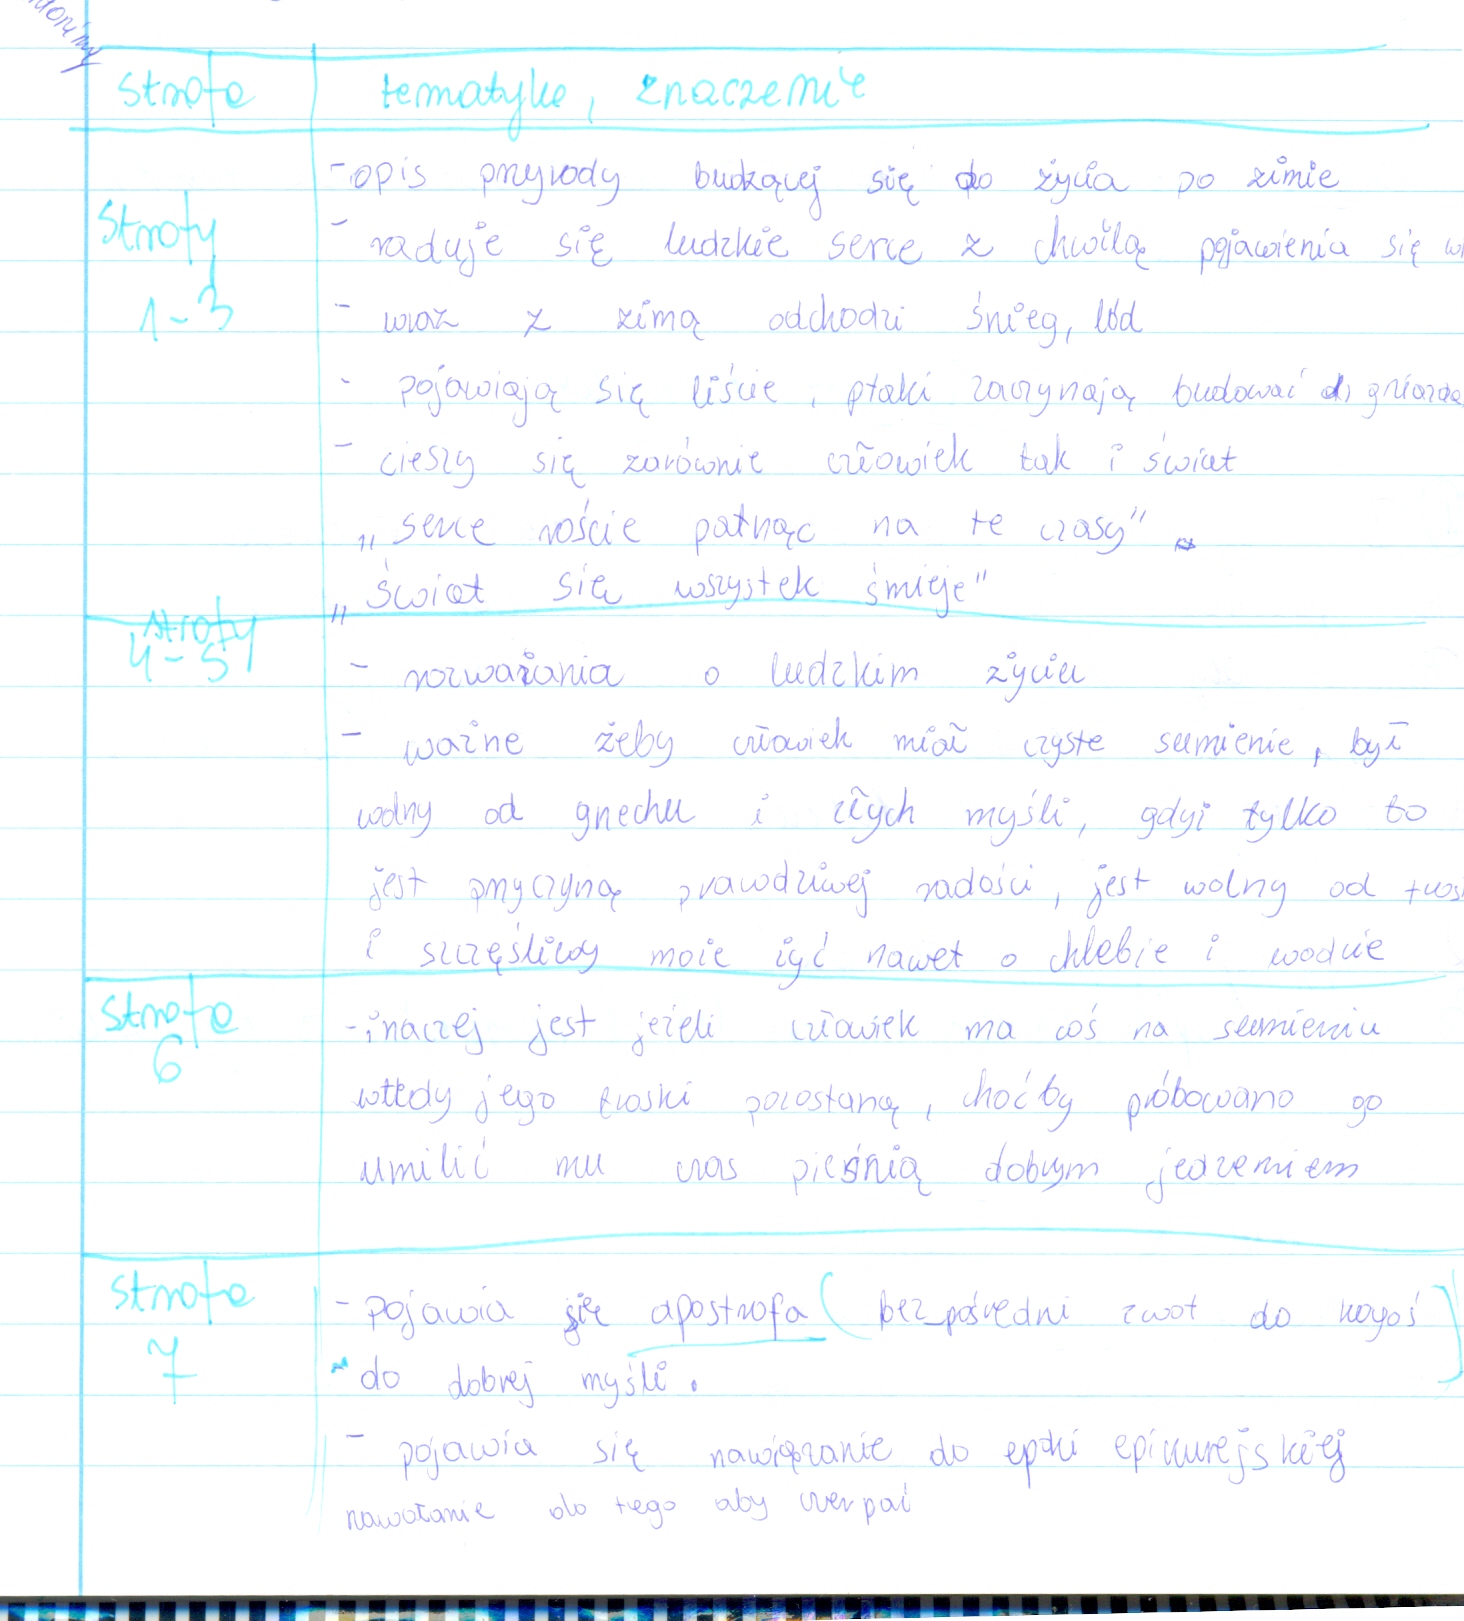 strofa tematyka, znaczenie
- opis przyrody budzącej się do życia po zimie
Strofy
1-3
- raduje się ludzkie serce z chwilą pojawienia się
- wraz z zimą odchodzi śnieg, lód
- pojawiają się liście, ptaki zaczynają budować gniazda
- cieszy się zarównie człowiek tak i świat
„serce roście patrząc na te czasy"
„świat się wszystek śmieje"
strofy
4-5
- rozważania o ludzkim życiu
- ważne żeby człowiek miał czyste sumienie, był
wolny od grzechu i złych myśli, gdyż tylko to
jest przyczyną prawdziwej radości, jest wolny od
i szczęśliwy może żyć nawet o chlebie i wodzie
Strofa
6
- inaczej jest jeżeli człowiek ma coś na sumieniu
wtedy jego troski pozostaną, choćby próbowano go
umilić mu czas pieśnią dobrym jedzeniem
strofa
7
- pojawia się apostrofa (bezpośredni zwot do kogoś)
do dobrej myśli.
- pojawia się nawiązanie do epoki epikurejskiej
nawołanie do tego aby czerpać